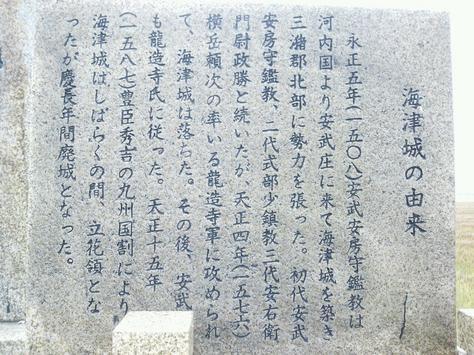 海津城の由来
永正五年(一五〇八)安武安房守鑑教は
河内国より安武庄に来て海津城を築き
三潴郡北部に勢力を張った。初代安武
安房守鑑教、二代式部少鎮教三代安右衛
門尉政勝と続いたが、天正四年(一五七六)
横岳頼次の率いる龍造寺軍に攻められ
て、海津城は落ちた。その後、安武
も龍造寺氏に従った。天正十五年
(一五八七)豊臣秀吉の九州国割により
海津城はしばらくの間、立花領とな
ったが慶長年間廃城となった。